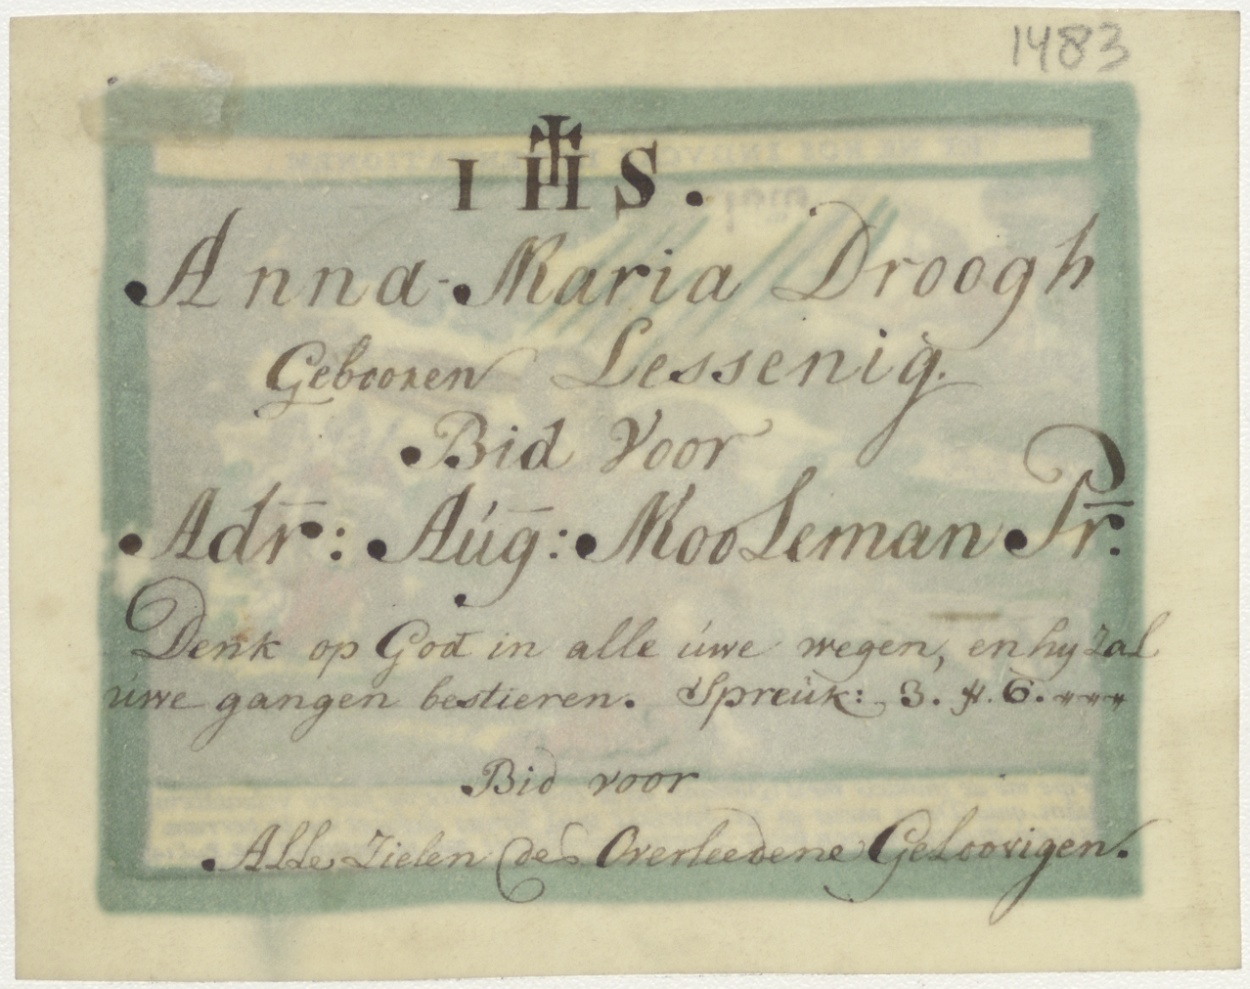 1483
IHS.
Anna-Maria Droogh
Gebooren Lessenig.
Bid Voor
Adr: Aúg: Mooleman Pr:
Denk op God in alle úwe wegen, en hy zal
úwe gangen bestieren. Spreúk: 3. ℣. 6.
Bid voor
Alle Zielen des Overleedene Geloovigen.